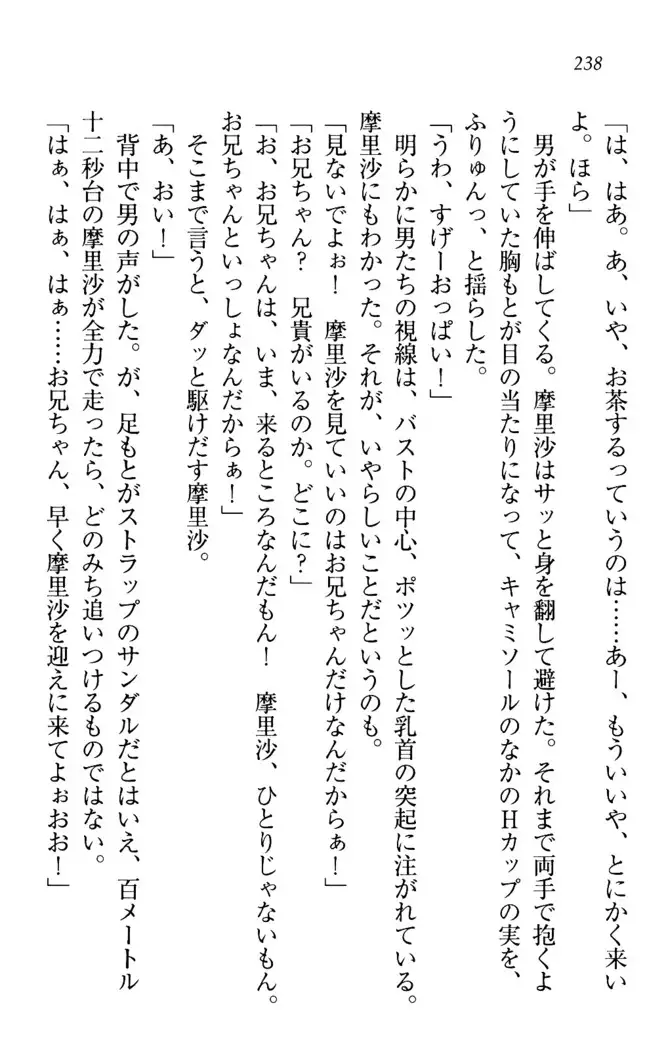 238
「は、はあ。あ、いや、お茶するっていうのは……あー、もういいや、とにかく来い
よ。ほら」
　男が手を伸ばしてくる。摩里沙はサッと身を翻して避けた。それまで両手で抱くよ
うにしていた胸もとが目の当たりになって、キャミソールのなかのＨカップの実を、
ふりゅんっ、と揺らした。
「うわ、すげーおっぱい！」
　明らかに男たちの視線は、バストの中心、ポツッとした乳首の突起に注がれている。
摩里沙にもわかった。それが、いやらしいことだというのも。
「見ないでよぉ！　摩里沙を見ていいのはお兄ちゃんだけなんだからぁ！」
「お兄ちゃん？　兄貴がいるのか。どこに？」
「お、お兄ちゃんは、いま、来るところなんだもん！　摩里沙、ひとりじゃないもん。
お兄ちゃんといっしょなんだからぁ！」
　そこまで言うと、ダッと駆けだす摩里沙。
「あ、おい！」
　背中で男の声がした。が、足もとがストラップのサンダルだとはいえ、百メートル
十二秒台の摩里沙が全力で走ったら、どのみち追いつけるものではない。
「はぁ、はぁ、はぁ……お兄ちゃん、早く摩里沙を迎えに来てよぉおお！」